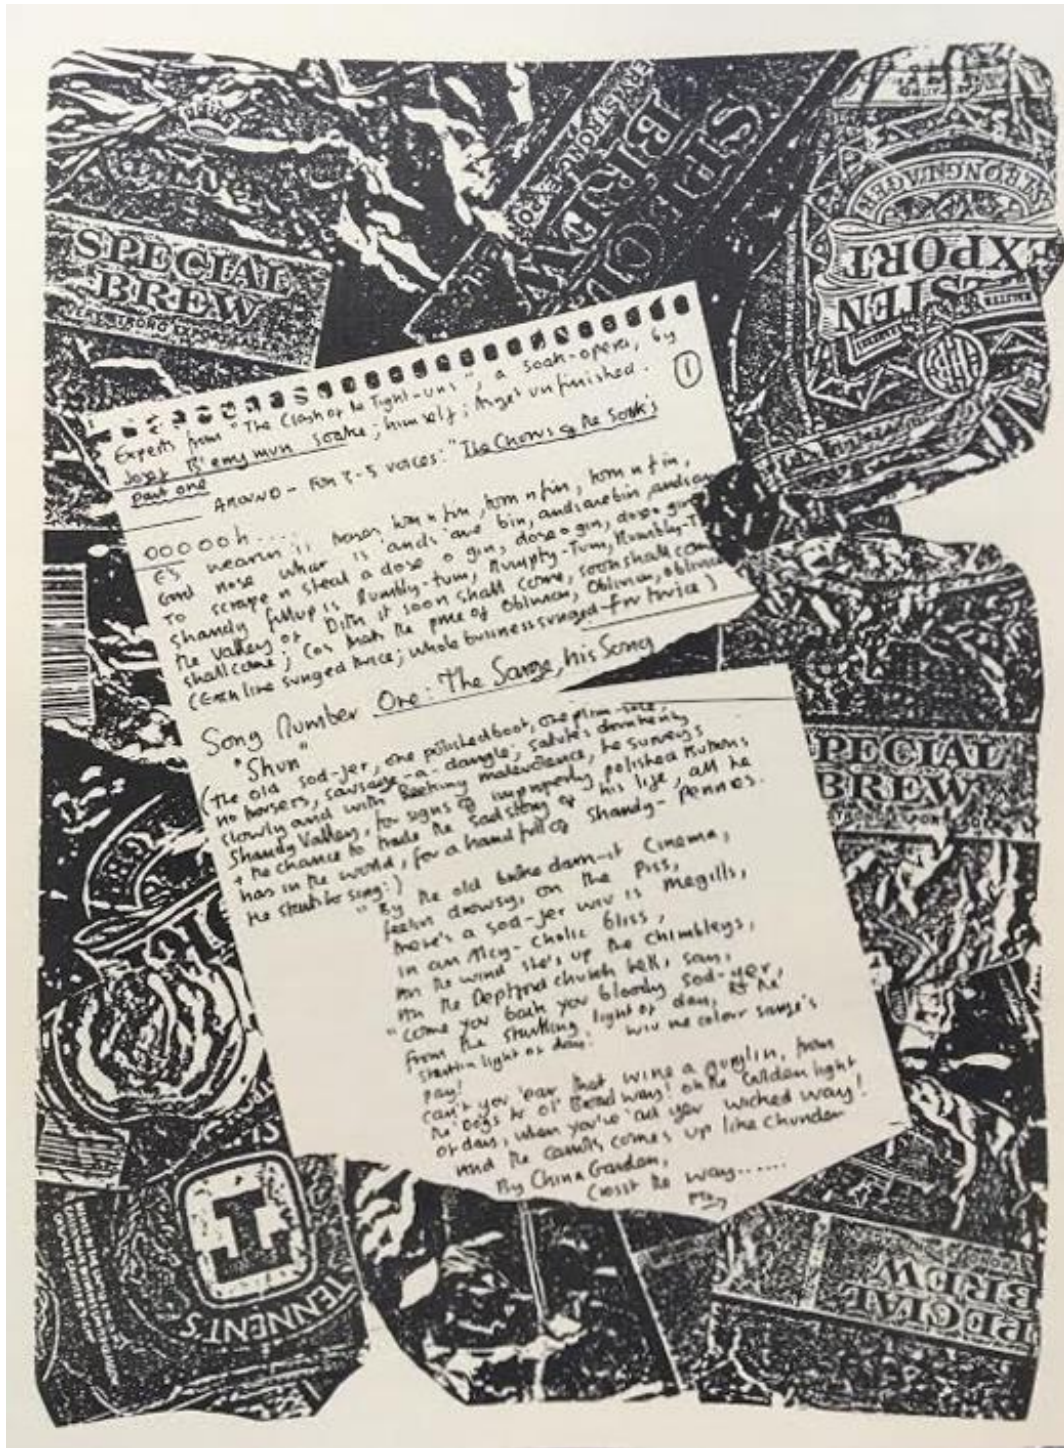 SPECIAL
BREW
VERY STRONG EXPORT LAGER
SPECIAL
BREW
STRONG LAGER
EXPORT
Experts from "The Clash of the Tight-uns", a soak-opera, by
himself; unfinished.
①
part one
AROUND - For 2-5 voices: "The Chorus of the Soak's
oooooh....
E's wearin is hom n fin, hom n fin,
God nose what is ands ave bin, andsavebin,
To scrape n steal a dose o gin, dose o gin, dose o gin
shandy fillup is Rumbly-tum, Rumpty-Tum, Rumbly-T
the valley of Dith it soon shall come, soon shall com
shall come; Cos thats the price of Oblivion, Oblivion,
(Each line sunged twice; whole business sunged for twice)
Song Number One: The Sarge, his Song
"Shun"
(The old sod-jer, one polished boot, one
no trousers, sausage-a-dangle, salutes
slowly and with malevolence, he surveys
Shandy Valley, for signs of improperly polished buttons
+ the chance to trade the sad story of his life, all he
has in the world, for a hand full of Shandy-pennes.
he starts to song:)
"By the old broke damn-it Cinema,
feelin drowsy, on the Piss,
there's a sod-jer wiv is megills,
in an Alcy-cholic bliss,
An the wind she's up the chimbleys,
An the Deptford church bells, say,
"Come you back you bloody sod-yer,
from the startling light of day, to the
startlin light of day! wiv me colour sarge's
pay!
can't you 'ear that, wine a gurglin, from
the Dogs to ol' Broadway! oh the Golden light
of day, when you've 'ad yer wicked way!
And the comes up like Chunder
By China Garden,
Crosst the way......
SPECIAL
BREW
T
TENNENT'S
SPECIAL
BREW